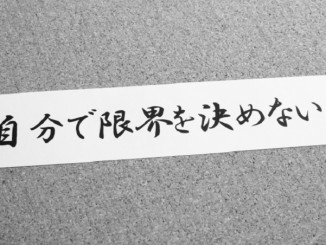 自分で限界を決めない